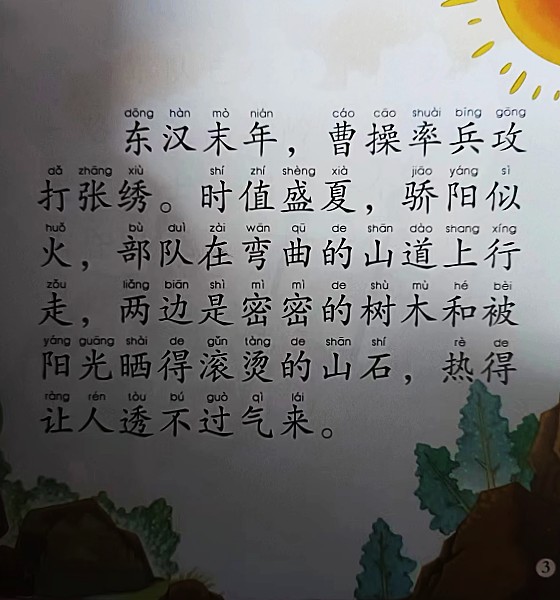 dōng hàn mò nián cáo cāo shuài bīng gōng
东汉末年，曹操率兵攻
dǎ zhāng xiù shí zhí shèng xià jiāo yáng sì
打张绣。时值盛夏，骄阳似
huǒ bù duì zài wān qū de shān dào shang xíng
火，部队在弯曲的山道上行
zǒu liǎng biān shì mì mì de shù mù hé bèi
走，两边是密密的树木和被
yáng guāng shài de gǔn tàng de shān shí rè de
阳光晒得滚烫的山石，热得
ràng rén tòu bú guò qì lái
让人透不过气来。
3